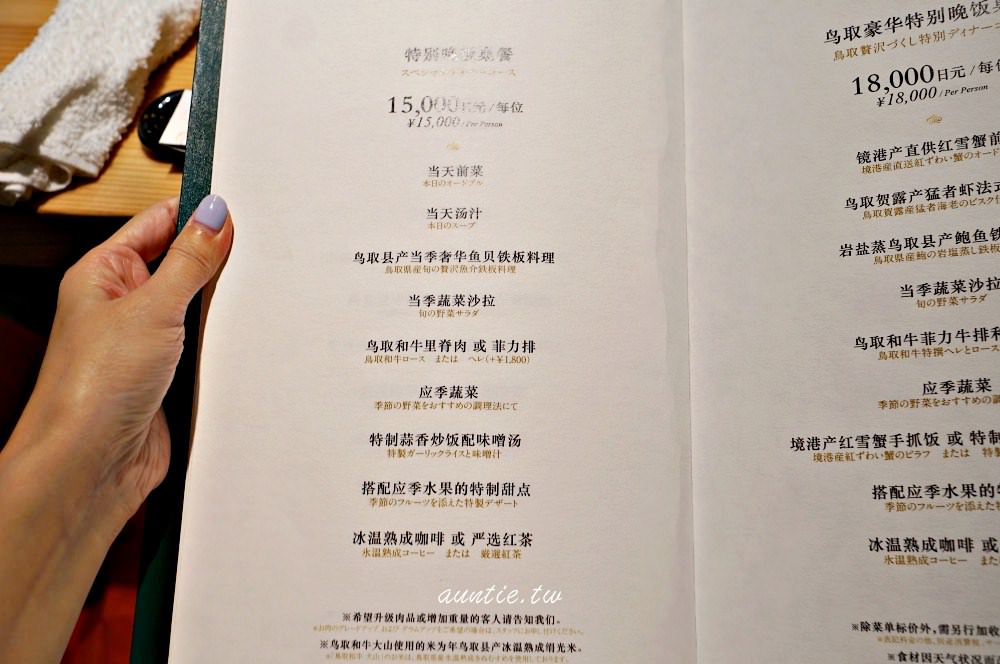 特别晚饭套餐
15,000日元/每位
¥15,000/Per Person
当天前菜
本日のオードブル
当天汤汁
本日のスープ
鸟取县产当季奢华鱼贝铁板料理
鳥取県産旬の贅沢魚介鉄板料理
当季蔬菜沙拉
旬の野菜サラダ
鸟取和牛里脊肉 或 菲力排
鳥取和牛ロース または ヘレ(+¥1,800)
应季蔬菜
季節の野菜をおすすめの調理法にて
特制蒜香炒饭配味噌汤
特製ガーリックライスと味噌汁
搭配应季水果的特制甜点
季節のフルーツを添えた特製デザート
冰温熟成咖啡 或 严选红茶
氷温熟成コーヒー または 厳選紅茶
※希望升级肉品或增加重量的客人请告知我们。
※お肉のグレードアップ および グラムアップをご希望の場合は、スタッフにお申し付けください。
※鸟取和牛大山使用的米为年鸟取县产冰温熟成绢光米。
鸟取豪华特别晚饭
鳥取贅沢づくし特別ディナー
18,000日元/每位
¥18,000/Per Person
镜港产直供红雪蟹前
境港産直送紅ずわい蟹のオード
鸟取贺露产猛者虾法式
鳥取賀露産猛者海老のビスク
岩盐蒸鸟取县产鲍鱼铁
鳥取県産鮑の岩塩蒸し鉄板
当季蔬菜沙
旬の野菜サラダ
鸟取和牛菲力牛排和
鳥取和牛特撰ヘレとロース
应季蔬菜
季節の野菜をおす
境港产红雪蟹手抓饭 或 特制
境港産紅ずわい蟹のピラフ または 特製
搭配应季水果的
季節のフルーツを添えた特
冰温熟成咖啡 或
氷温熟成コーヒー また
※除菜单标价外,需另行加收
※食材因天气状况
auntie.tw